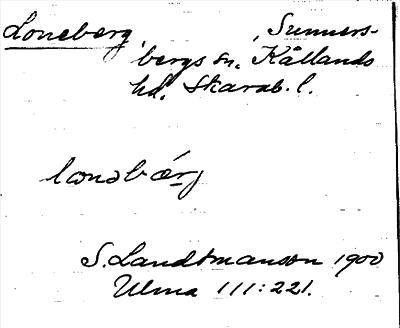 Loneberg, Sunners-
bergs sn. Kållands
hd. Skarab. l.
lonəbærj
S. Landtmanson 1900
Ulma 111:221.